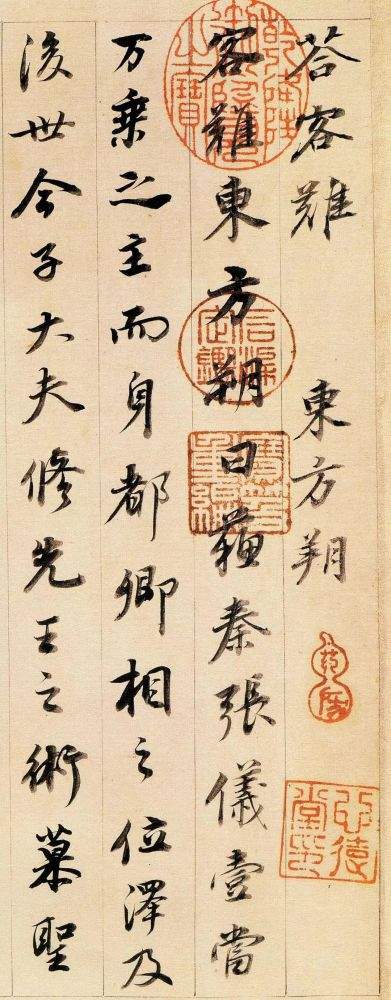 荅客難 東方朔
客難東方朔曰蘇秦張儀壹當
万乗之主而身都卿相之位澤及
後世今子大夫修先王之術慕聖